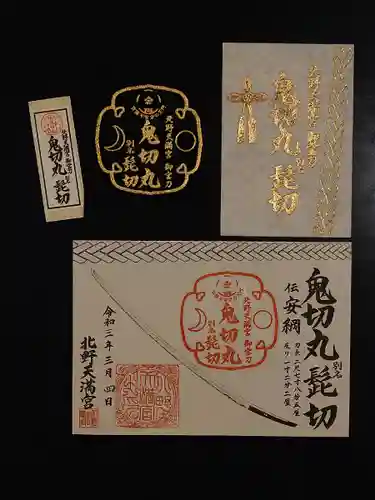 北野天満宮 御宝刀
鬼切丸 別名
髭切
北野天満宮 御宝刀
鬼切丸
別名
髭切
北野天満宮 御宝刀
鬼切丸 別名
髭切
鬼切丸 別名 髭切
伝 安綱
刃長 二尺七寸八分五厘
反り 一寸二分二厘
北野天満宮 御宝刀
鬼切丸
別名
髭切
令和三年三月四日
北野天満宮